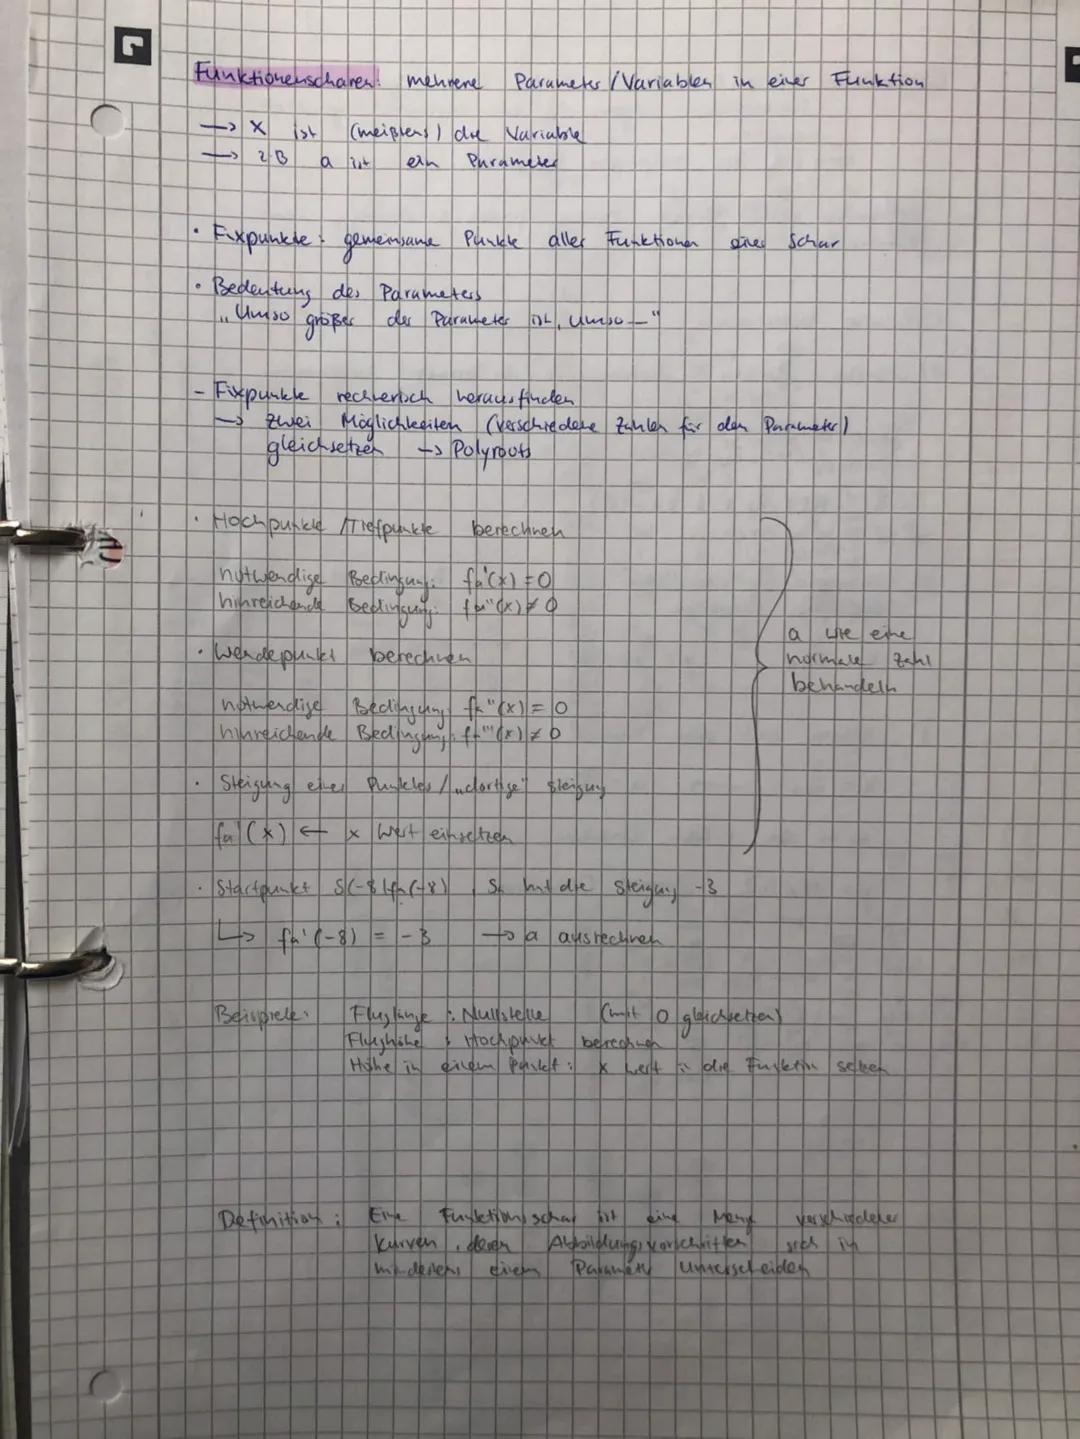 Funktionenscharen: mehrere Parameter/Variablen in einer Funktion
→ x ist (meistens) die Variable
→ z.B a ist ein Parameter
• Fixpunkte: gemeinsame Punkte aller Funktionen einer Schar
• Bedeutung des Parameters
„Umso größer der Parameter ist, umso —"
- Fixpunkte rechnerisch herausfinden
→ zwei Möglichkeiten (verschiedene Zahlen für den Parameter)
gleichsetzen → Polyroots
• Hochpunkte/Tiefpunkte berechnen
notwendige Bedingung: fa'(x) = 0
hinreichende Bedingung: fa''(x) ≠ 0
• Wendepunkt berechnen
notwendige Bedingung: fa''(x) = 0
hinreichende Bedingung: fa'''(x) ≠ 0
a wie eine
normale Zahl
behandeln
• Steigung eines Punktes / „dortige" Steigung
fa'(x) ← x Wert einsetzen
• Startpunkt S(-8|fa(-8)) hat die Steigung -3
↳ fa'(-8) = -3 → a ausrechnen
Beispiele: Fluglänge: Nullstelle (mit 0 gleichsetzen)
Flughöhe: Hochpunkt berechnen
Höhe in einem Punkt: x Wert in die Funktion setzen
Definition: Eine Funktionsschar ist eine Menge verschiedener
Kurven, deren Abbildungsvorschriften sich in
mindestens einem Parameter unterscheiden